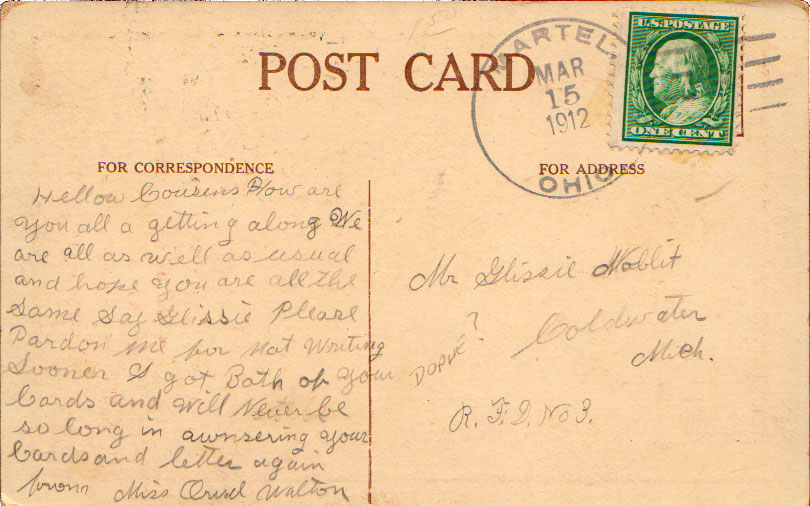 POST CARD
MARTEL
MAR
15
1912
OHIO
U.S. POSTAGE
ONE CENT
FOR CORRESPONDENCE
Hellow Cousens How are
you all a getting along We
are all as well as usual
and hope you are all the
Same Say Glissie Please
Pardon me for not Writing
Sooner I got Both of your
Cards and Will Never be
so long in awnsering your
Cards and letter again
from Miss Walton
FOR ADDRESS
Mr Glissie Moblit
Coldwater
Mich.
DOPNE?
R. F. D. No 3.